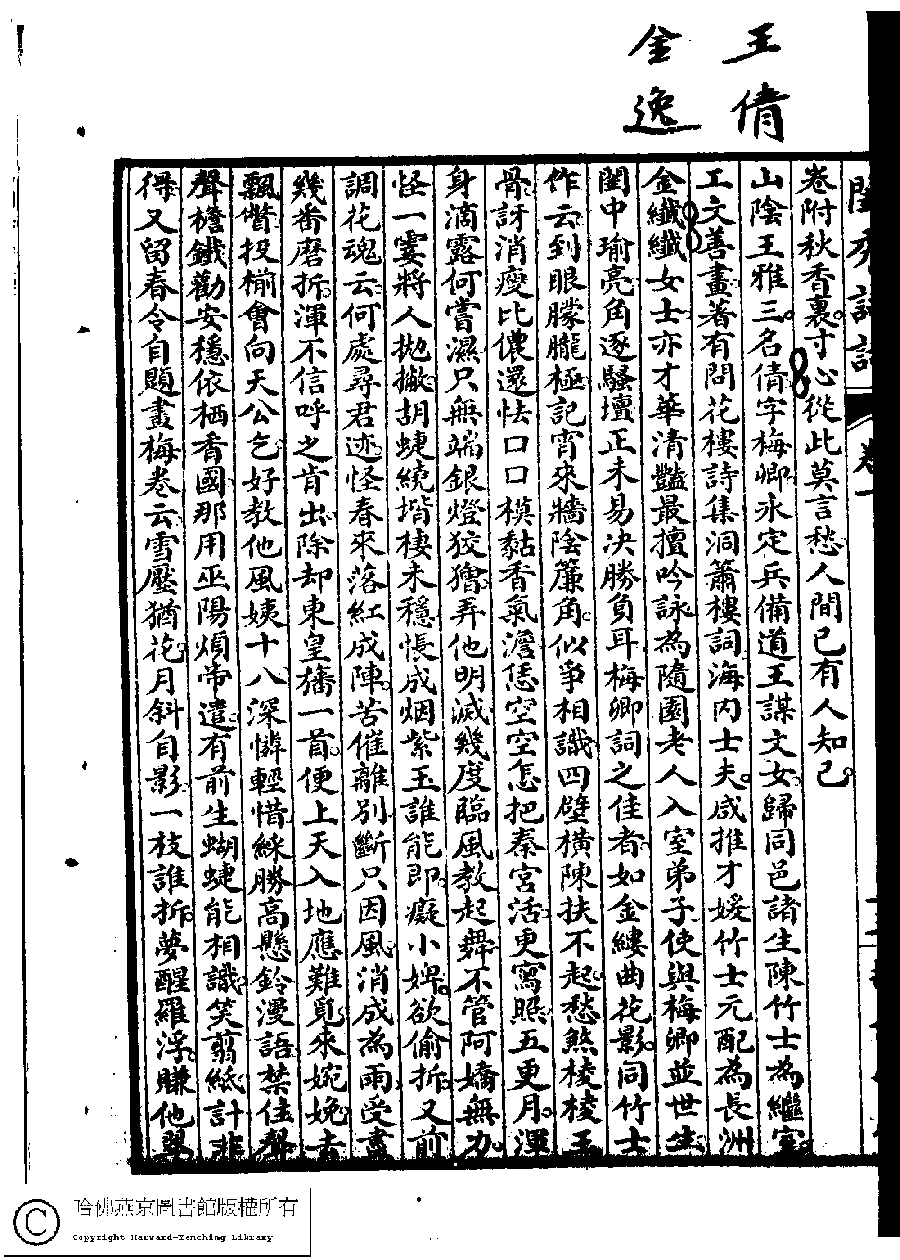 王倩
金逸
閨秀詩話 卷一
卷附秋香裏寸心從此莫言愁人間已有人知己
山陰王雅三名倩字梅卿永定兵備道王謀文女歸同邑諸生陳竹士為繼室
工文善畫著有問花樓詩集洞簫樓詞海內士夫咸推才媛竹士元配為長洲
金纖纖女士亦才華清豔最擅吟詠為隨園老人入室弟子使與梅卿並世生
閨中瑜亮角逐騷壇正未易決勝負耳梅卿詞之佳者如金縷曲花影同竹士
作云到眼朦朧極記宵來牆陰簾角似爭相識四壁橫陳扶不起愁煞棱棱玉
骨訝消瘦比儂還怯口口模黏香氣澹恁空空怎把秦宮活更寫照五更月渾
身滴露何嘗濕只無端銀燈狡獪弄他明滅幾度臨風教起舞不管阿嬌無力
怪一霎將人拋撇胡蜨繞堦棲未穩悵成烟紫玉誰能即癡小婢欲偷折又前
調花魂云何處尋君迹怪春來落紅成陣苦催離別斷只因風消成為雨受盡
幾番磨折渾不信呼之肯出除却東皇旛一首便上天入地應難覓來婉娩去
飄瞥投梭會向天公乞好教他風姨十八深憐輕惜綵勝高懸鈴漫語禁住聲
聲檐鐵勸安穩依栖香國那用巫陽煩帝遣有前生蝴蜨能相識笑翦紙計非
得又留春令自題畫梅卷云雪壓猶花月斜自影一枝誰折夢醒羅浮賺他翠
哈佛燕京圖書館版權所有
Copyright Harvard-Yenching Library